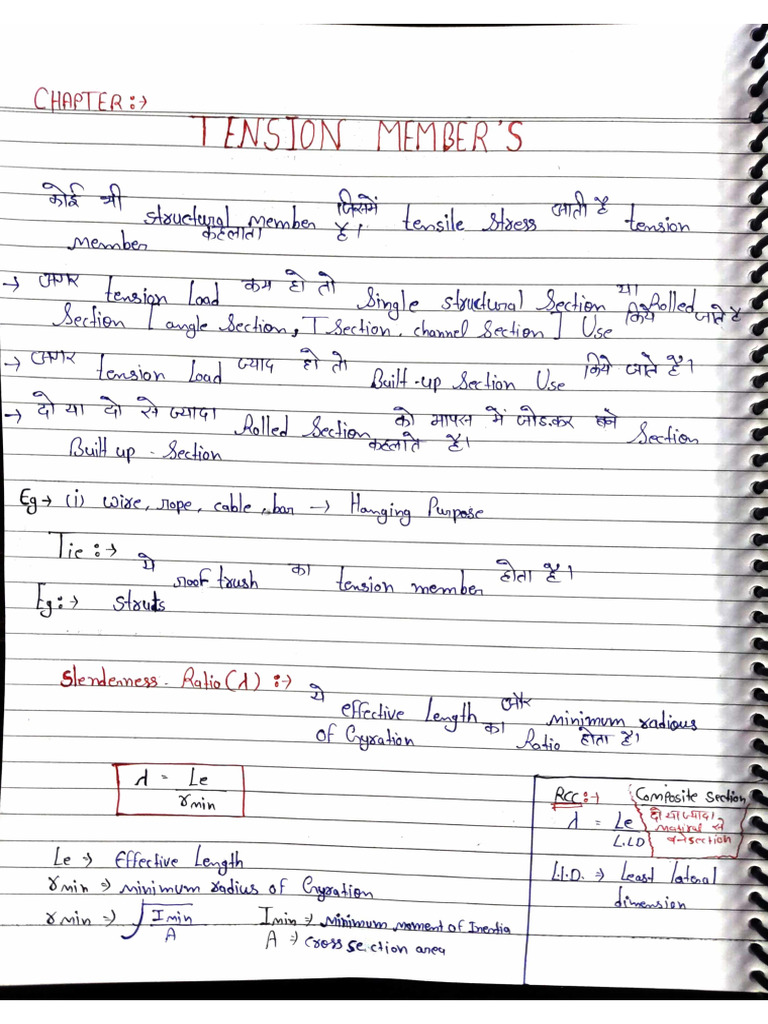 CHAPTER:→
TENSION MEMBER'S
कोई भी structural member जिसमें tensile stress आती है tension
member कहलाता है।
→ अगर tension Load कम हो तो Single structural Section या Rolled
Section [angle Section, I Section, channel Section] Use किये जाते है
→ अगर tension Load ज्याद हो तो Built-up Section Use किये जाते हैं।
→ दो या दो से ज्यादा Rolled Section को आपस में जोड़कर बने Section
Built up - Section कहलाते है।
Eg→ (i) wire, rope, cable, bar → Hanging Purpose
Tie:→ ये roof trush का tension member होता है।
Eg:→ struts
Slenderness - Ratio(λ) :→ ये effective Length और minimum radious
of Gyration का Ratio होता है।
λ = Le / rmin
Le → Effective Length
rmin ⇒ minimum radius of Gyration
rmin ⇒ √(Imin / A)
Imin ⇒ Minimum moment of Inertia
A ⇒ cross section area
RCC:→ Composite section
λ = Le / L.L.D
दो या ज्यादा
matiral से
बने section
L.L.D. ⇒ Least lateral
dimension